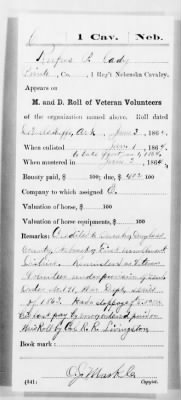 C 1 Cav. Neb.
Rufus P. Cady
Private, Co. , 1 Reg't Nebraska Cavalry.
Appears on
M. and D. Roll of Veteran Volunteers
of the organization named above. Roll dated
Ark. Jan 3, 1864.
When enlisted Jan 1, 1864.
When mustered in Jan 3, 1864.
Bounty paid, $ 100; due, $ 402 100
Company to which assigned C.
Valuation of horse, $ 100
Valuation of horse equipments, $ 100
Remarks: Credited to Douglas
County, Nebraska First
District. Reenlisted as Veteran
Volunteer under provision of Genl
Order No. 191, War Dept, series
of 1863. Had stoppage of
pay by
this Roll by Col. R. R. Livingston
Book mark:
O. J. Mark
(341) Copyist.